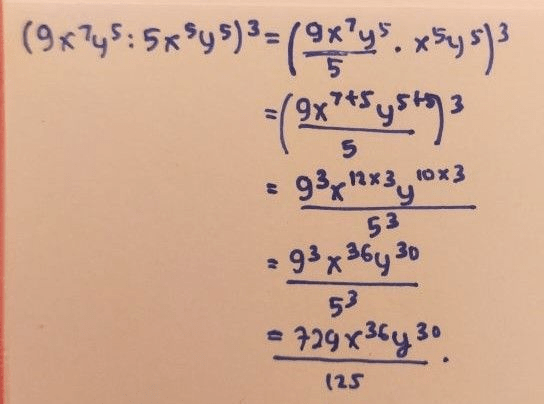 (9x⁷y⁵ : 5x⁵y⁵)³ = (9x⁷y⁵/5 · x⁵y⁵)³
= (9x⁷⁺⁵y⁵⁺⁵/5)³
= 9³x¹²ˣ³y¹⁰ˣ³/5³
= 9³x³⁶y³⁰/5³
= 729x³⁶y³⁰/125.